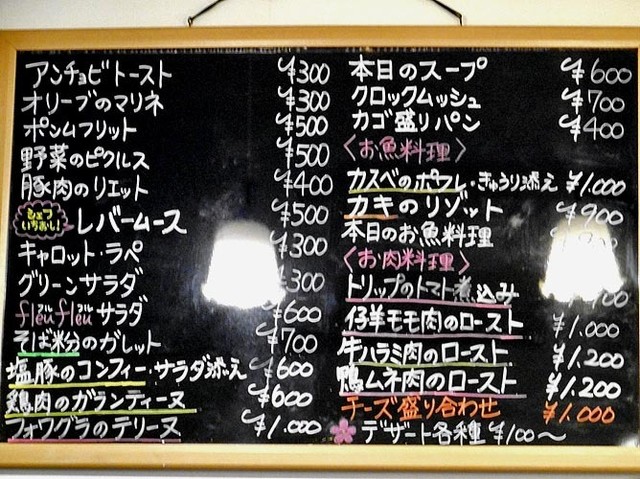 アンチョビトースト ¥300
オリーブのマリネ ¥300
ポンムフリット ¥500
野菜のピクルス ¥500
豚肉のリエット ¥400
シェフいちおし! レバームース ¥500
キャロット・ラペ ¥300
グリーンサラダ ¥300
fleu fleu サラダ ¥600
そば粉のガレット ¥700
塩豚のコンフィー・サラダ添え ¥600
鶏肉のガランティーヌ ¥600
フォワグラのテリーヌ ¥1.000
本日のスープ ¥600
クロックムッシュ ¥700
カゴ盛りパン ¥400
〈お魚料理〉
カスベのポワレ・きゅうり添え ¥1.000
カキのリゾット ¥900
本日のお魚料理
〈お肉料理〉
トリップのトマト煮込み
仔羊モモ肉のロースト ¥1.000
牛ハラミ肉のロースト ¥1.200
鴨ムネ肉のロースト ¥1.200
チーズ盛り合わせ ¥1.000
デザート各種 ¥100〜